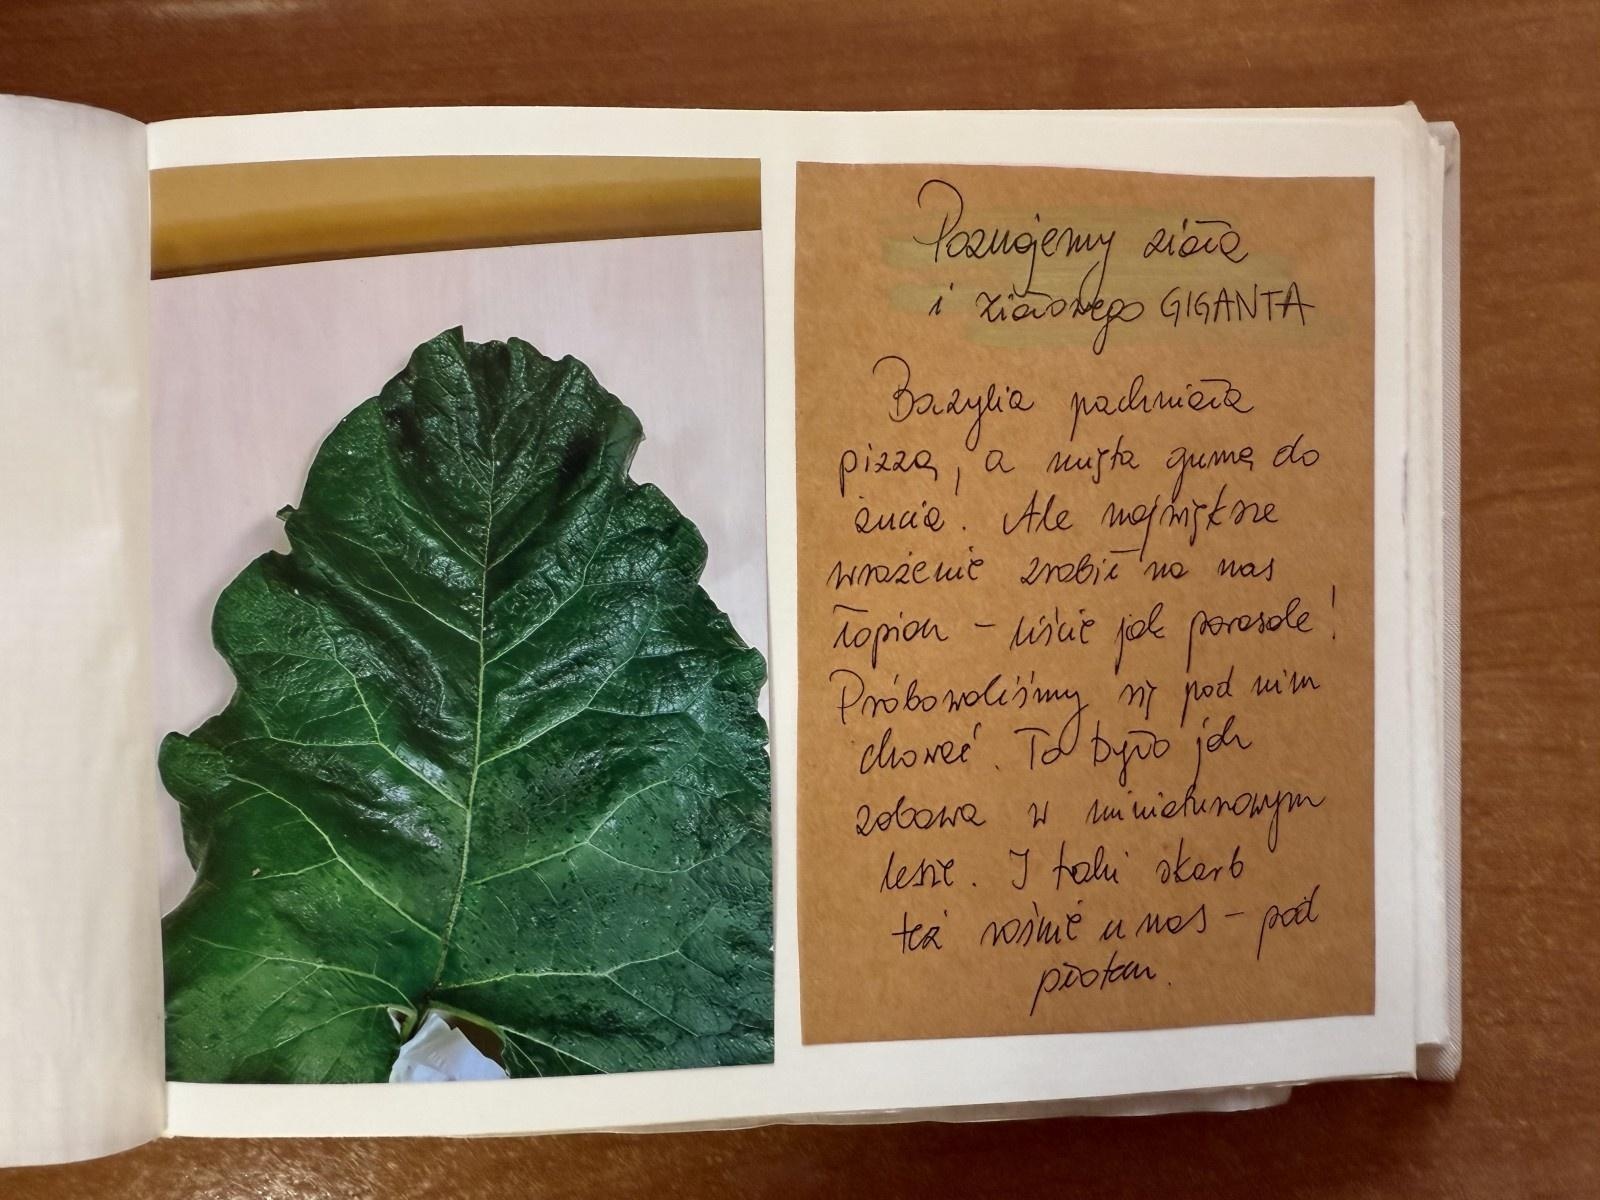 Poznajemy zioła
i ziołowego GIGANTA
Bazylia pachniała
pizzą, a mięta gumą do
żucia. Ale największe
wrażenie zrobił na nas
łopian – liście jak parasole!
Próbowaliśmy się pod nim
chować. To było jak
zabawa w miniaturowym
lesie. I taki skarb
też rośnie u nas – pod
płotem.